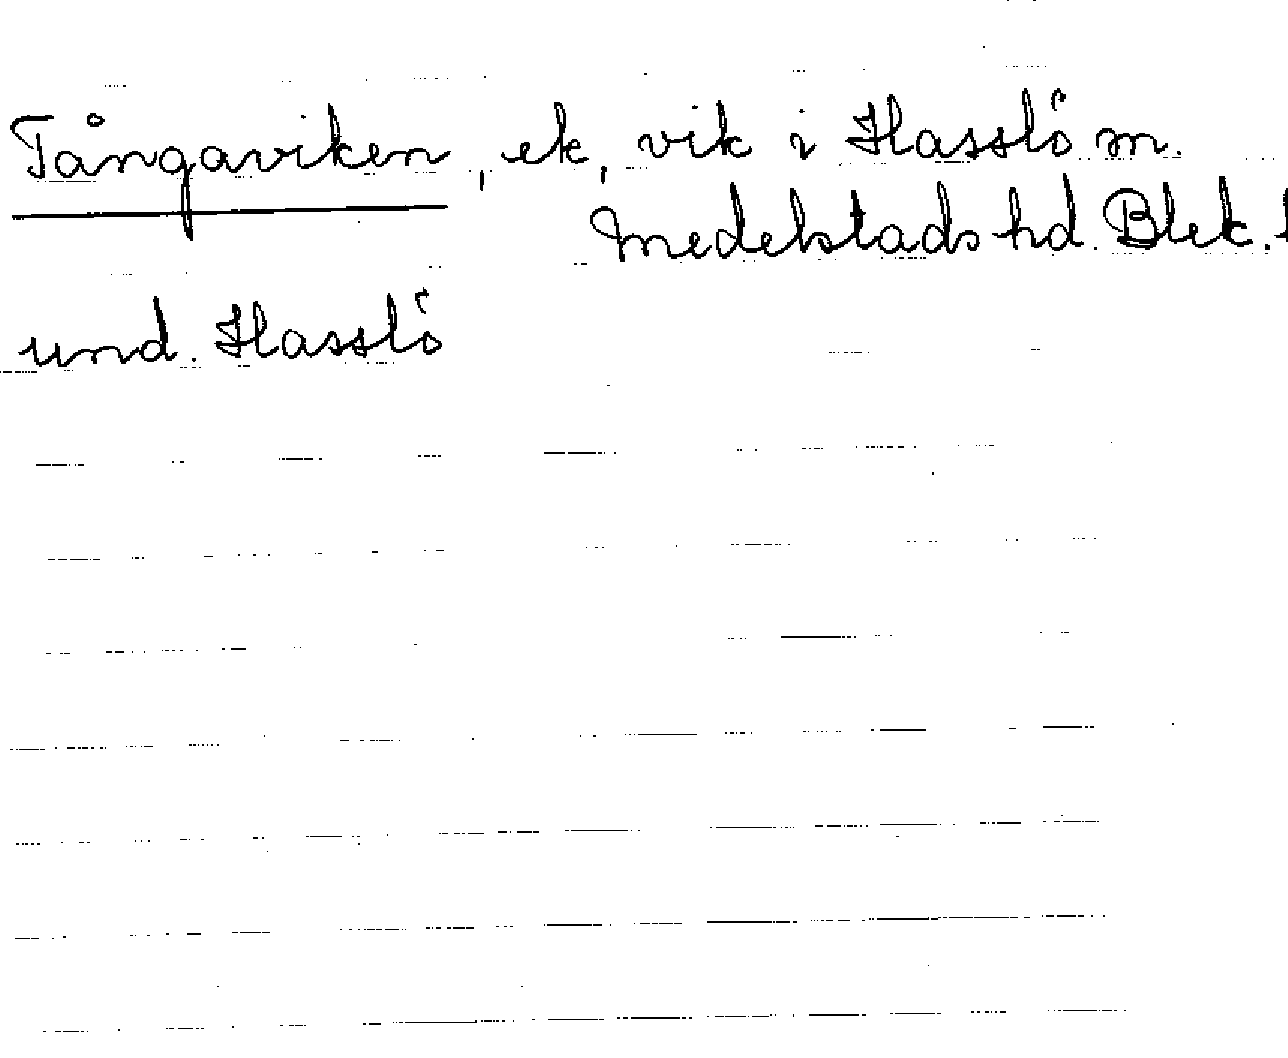 Tångaviken, ek, vik i Hasslö m.
Medelstads hd. Blek.
und. Hasslö